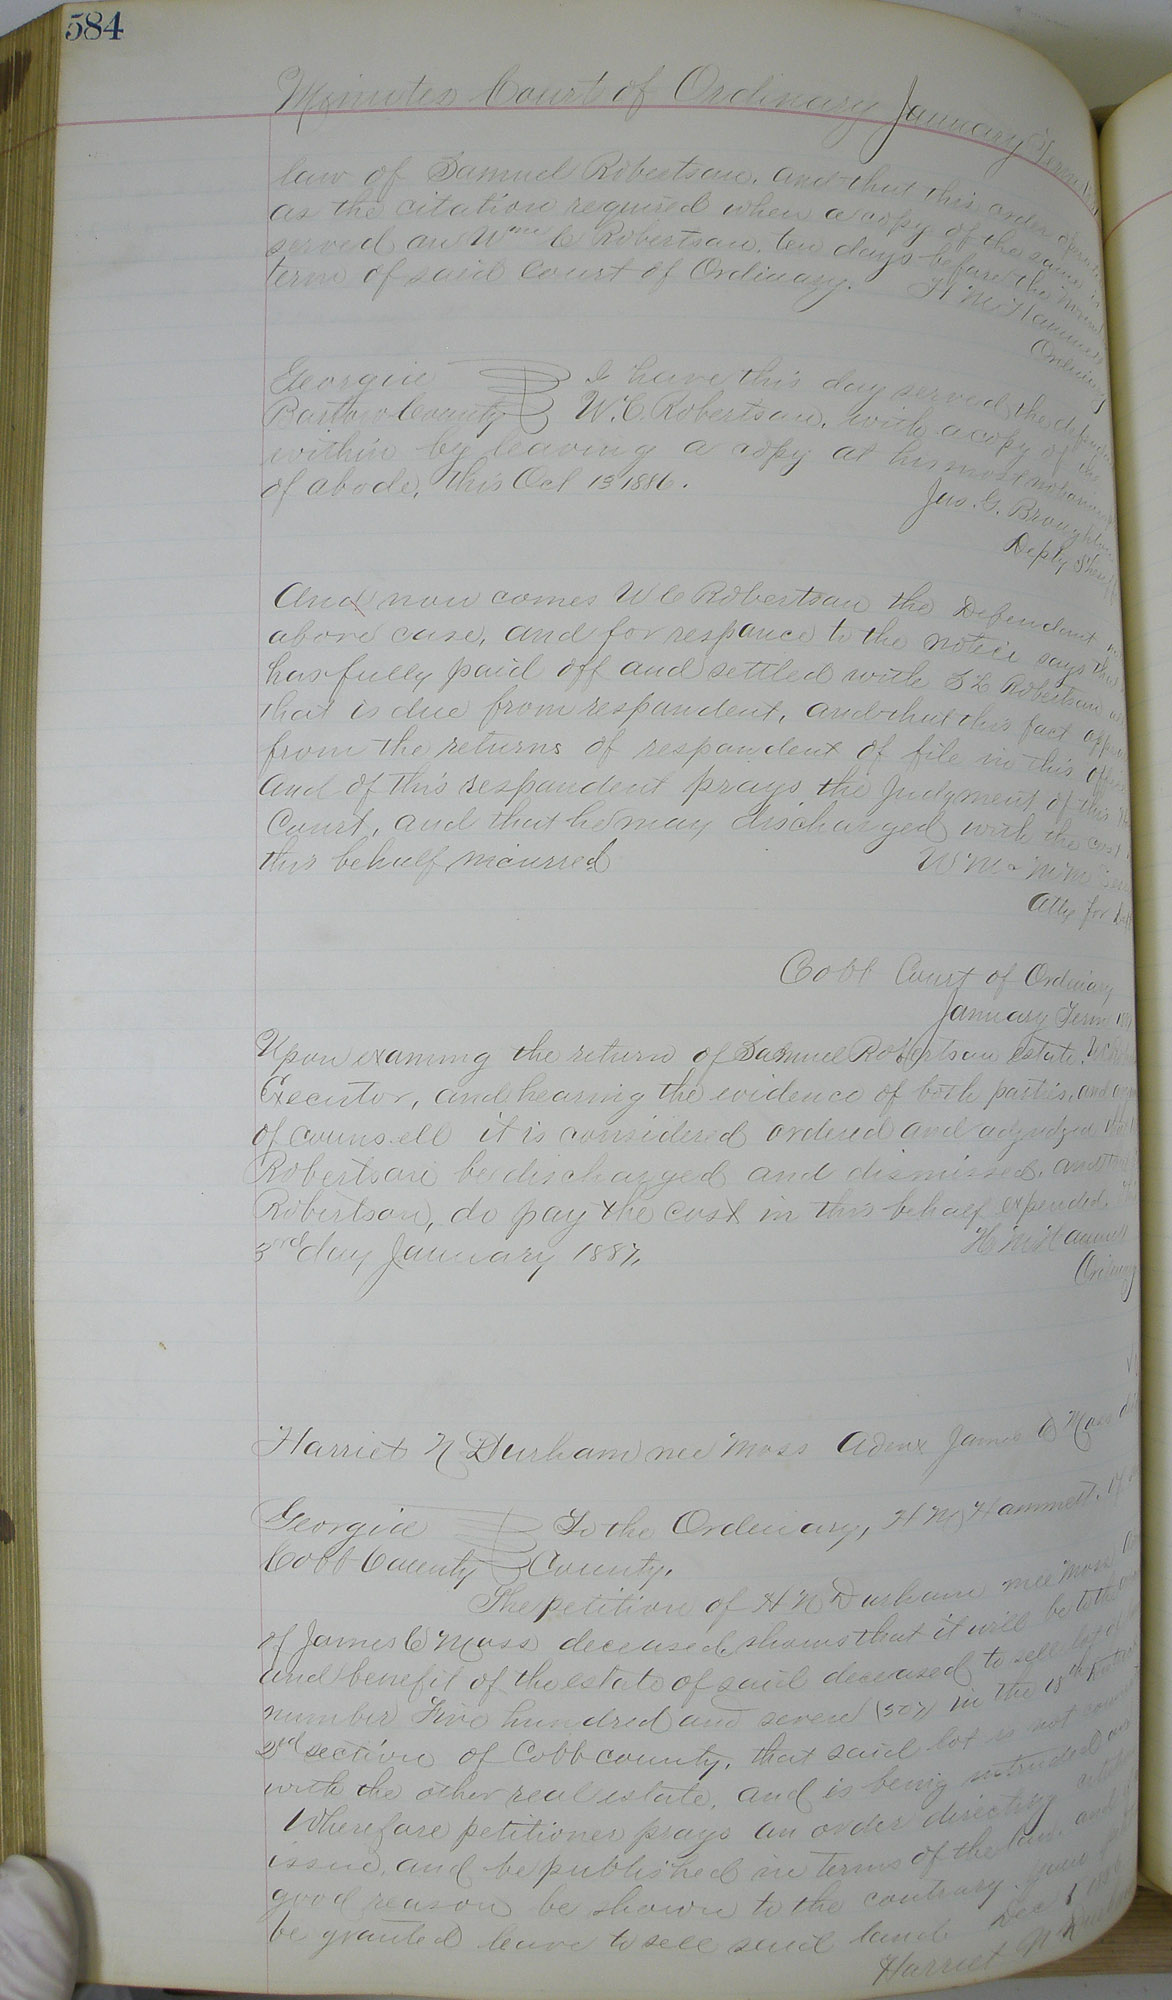 584
Minutes Court of Ordinary January Term
law of Samuel Robertson, and that this order operate
as the citation required when a copy of the same is
served on Wm C Robertson, ten days before the
term of said Court of Ordinary. H M Hammett
Ordinary
Georgia I have this day served the defendant
Bartow County W. C. Robertson, with a copy of the
within by leaving a copy at his most notorious
of abode, this Oct 13 1886.
Jas. G. Broughton
Depty Sheriff
And now comes W C Robertson the Defendant
above case, and for responce to the notice says that
has fully paid off and settled with S L Robertson
that is due from respondent, and that this fact
from the returns of respondent of file in this office
and of this respondent prays the Judgment of this
Court, and that he may discharged with the cost
this behalf incurred
Atty for
Cobb Court of Ordinary
January Term
Upon examing the return of Samuel Robertson Estate,
Executor, and hearing the evidence of both parties, and
of counsell it is considered ordered and adjudged
Robertson be discharged and dismissed, and
Robertson, do pay the cost in this behalf expended.
3rd day January 1887. H M Hammett
Ordinary
Harriet N Durham nee Moss Admx James C Moss
Georgia To the Ordinary, H M Hammett, of
Cobb County County.
The petition of H N Durham nee Moss
of James C Moss deceased, shows that it will be to the
and benefit of the estate of said deceased to sell lot of
number Five hundred and seven (507) in the 18th
2nd section of Cobb county, that said lot is not
with the other real estate, and is being intruded
Wherefore petitioner prays an order directing
issue, and be published in terms of the law, and
good reason be shown to the contrary, your
be granted leave to sell said land Dec 1 1886
Harriet N